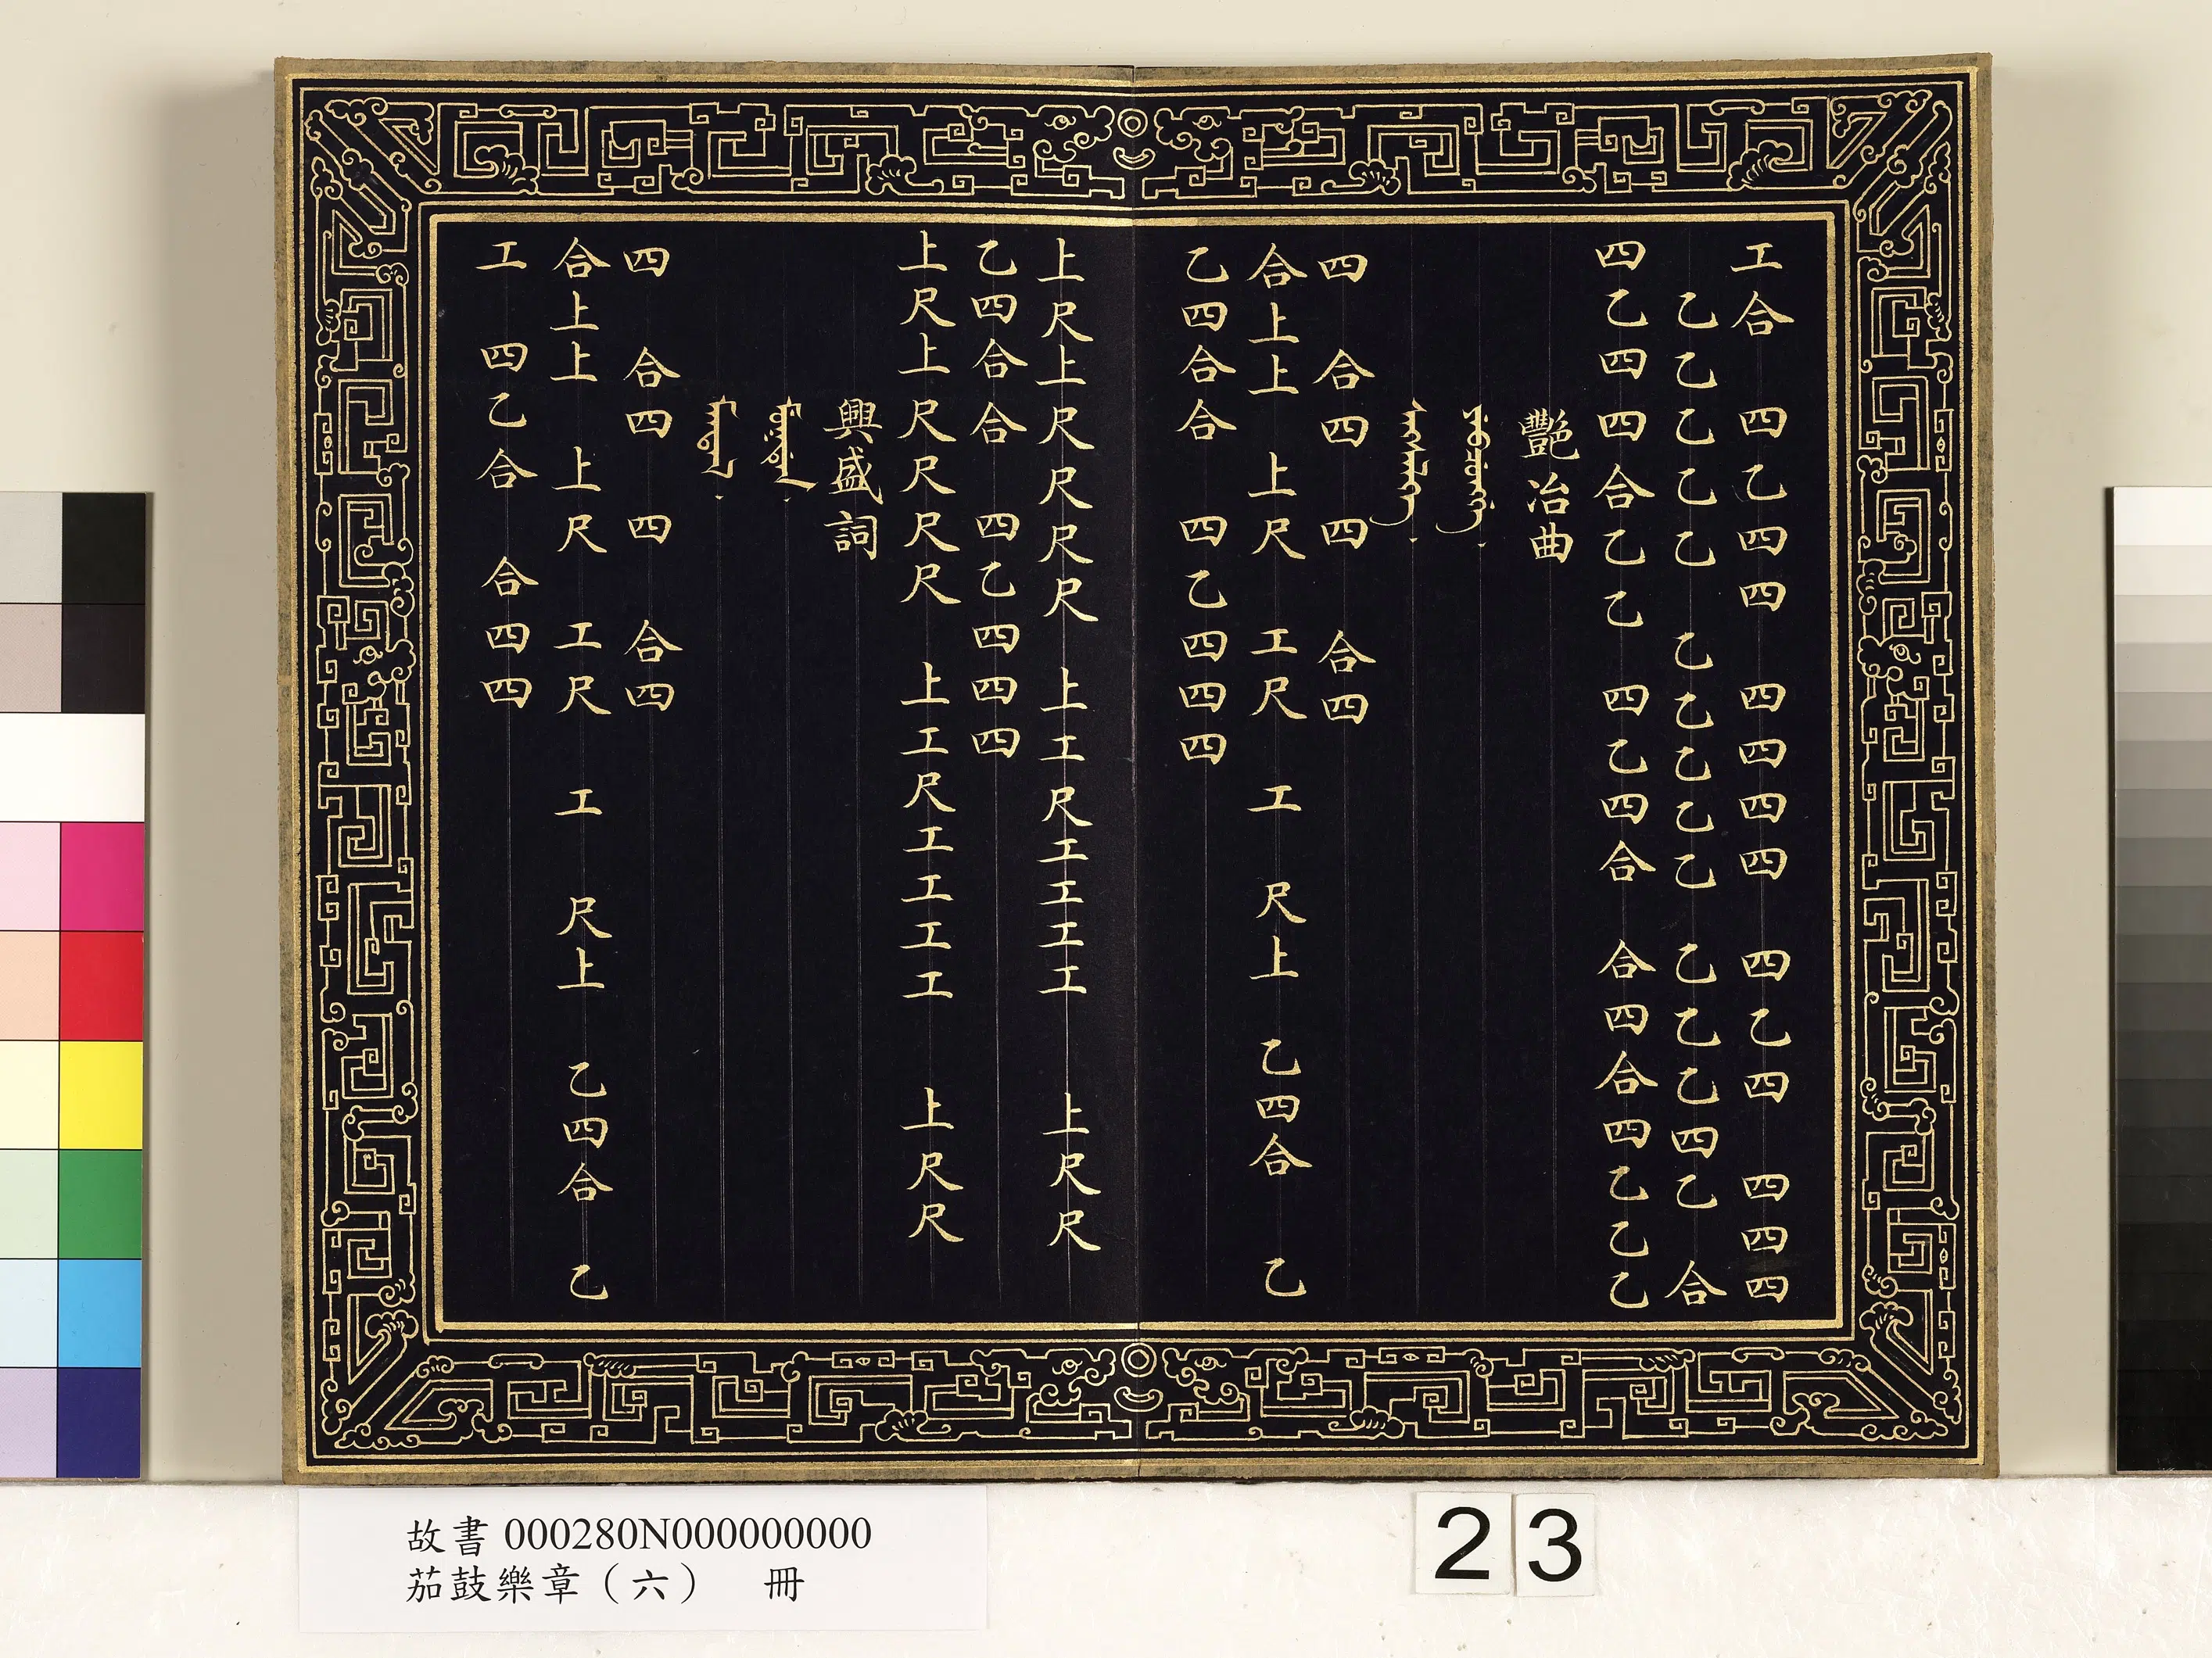 工合 四乙四四 四四四四 四乙四 四四四
乙乙乙乙乙 乙乙乙乙乙 乙乙乙四乙 合
四乙四四合乙乙 四乙四合 合四合四乙乙乙
艷冶曲
四 合四 四 合四
合上上 上尺 工尺 工 尺上 乙四合 乙
乙四合合 四乙四四四
上尺上尺尺尺尺 上工尺工工工工 上尺尺
乙四合合 四乙四四四
上尺上尺尺尺尺 上工尺工工工工 上尺尺
興盛詞
四 合四 四 合四
合上上 上尺 工尺 工 尺上 乙四合 乙
工 四乙合 合四四
故書 000280N000000000
茄鼓樂章（六） 冊
23